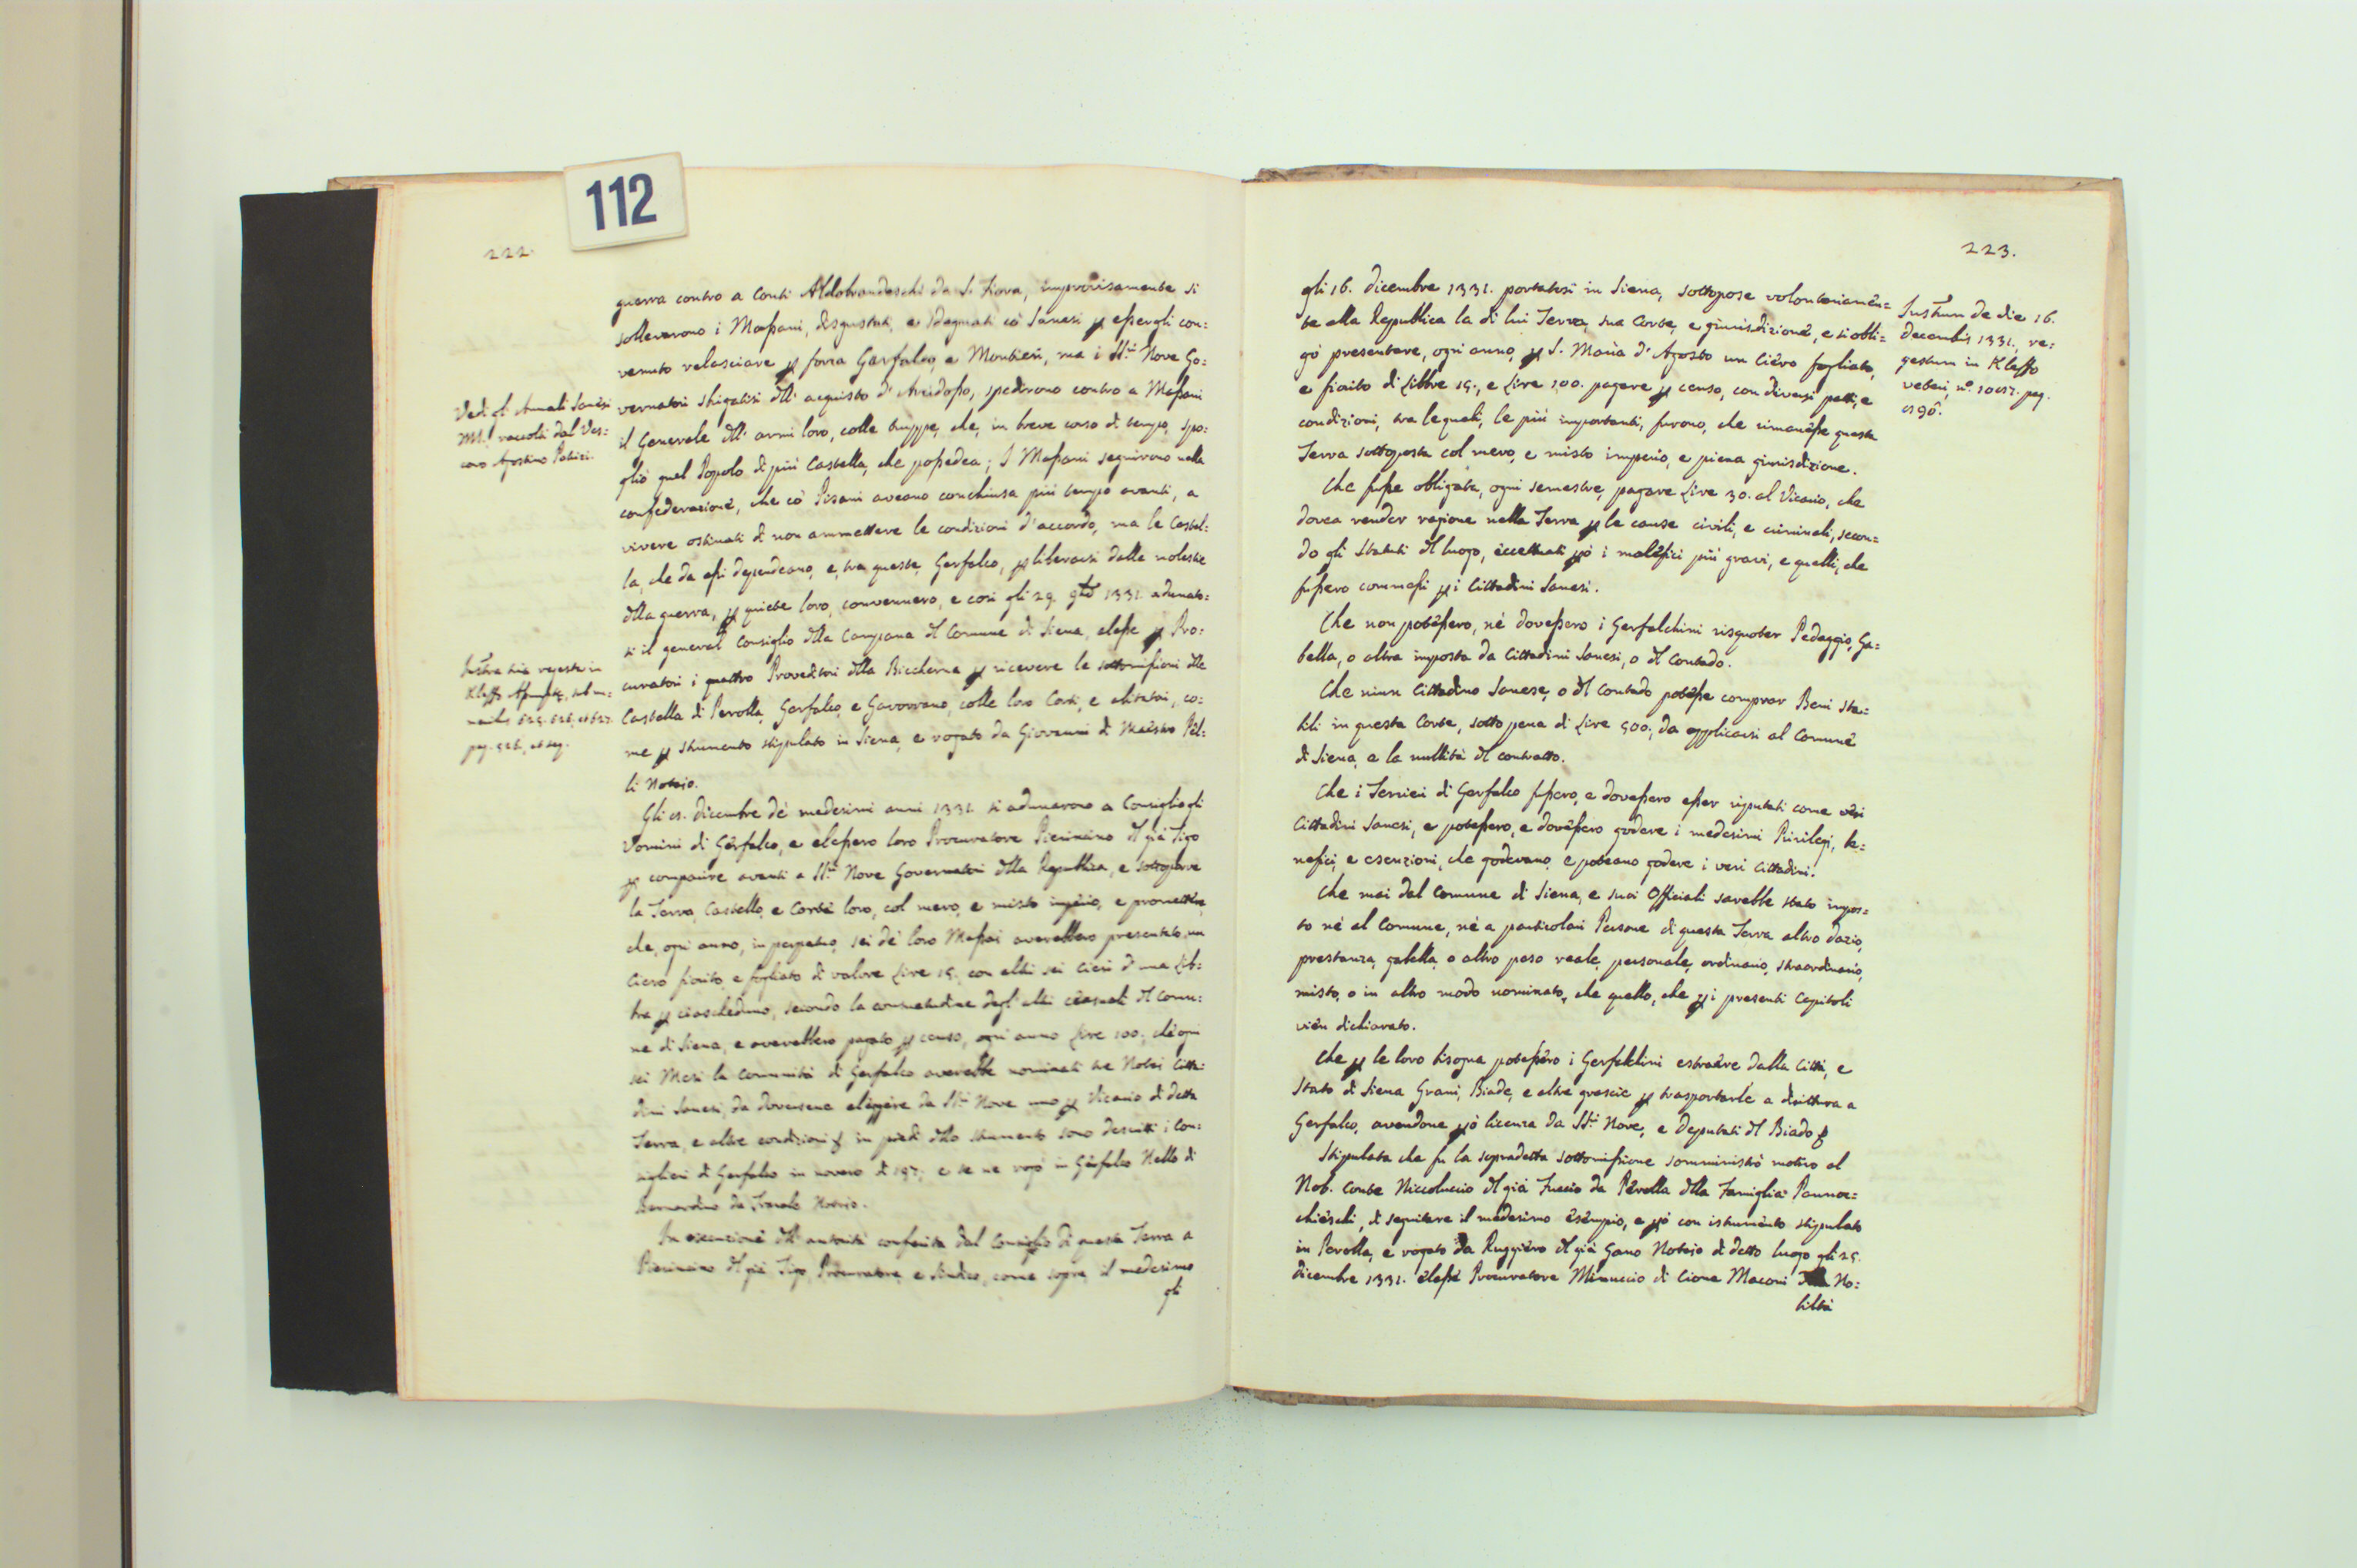 112
222.
guerra contro a Conti Aldobrandeschi da S. Fiora, improvisamente si
sollevarono i Massani, disgustati, e sdegnati co' Sanesi ꝑ essergli con:
venuto relasciare ꝑ forza Gerfalco, e Montieri, ma i SS.ri Nove Go:
vernatori sbrigatisi dll' acquisto d' Arcidosso, spedirono contro a Massani
il Generale dll' armi loro, colle truppe, che, in breve corso di tempo, spo:
gliò quel Popolo di più Castella, che possedea; I Massani seguirono nella
confederazione, che co' Pisani aveano conchiusa più tempo avanti, a
vivere ostinati di non ammettere le condizioni d'accordo, ma le Castel:
la, che da essi dependeano, e, tra queste, Gerfalco, ꝑ liberarsi dalle molestie
dlla guerra, ꝑ quiete loro, convennero, e così gli 29. 1331. adunato:
si il general Consiglio dlla Campana dl Comune di Siena, elesse ꝑ Pro:
curatori i quattro Proveditori dlla Biccherna ꝑ ricevere le sottomissioni dlle
Castella di Perolla, Gerfalco, e Gavorrano, colle loro Corti, e abitatori, co:
me ꝑ strumento stipulato in Siena, e rogato da Giovanni di Maestro Pel:
li Notaio.
Gli dicembre de' medesimi anni 1331. si adunarono a Consiglio gli
Vomini di Gerfalco, e elessero loro Procuratore Pierinino dl già Tigo
ꝑ comparire avanti a SS.ri Nove Governatori dlla Republica, e sottoporre
la Terra, Castello, e Corte loro, col mero, e misto imperio, e promettere,
che, ogni anno, in perpetuo, sei de' loro Massai averebbero presentato un
Ciero fiorito, e fogliato di valore Lire 15. con altri sei Cieri d' una Lib:
bra ꝑ ciascheduno, secondo la consuetudine degl' altri censuati dl Comu:
ne di Siena, e averebbero pagato ꝑ censo, ogni anno Lire 100., che ogni
sei Mesi la Comunità di Gerfalco averebbe nominati tre Nobili Citta:
dini Sanesi, da doversene eleggere da SS.ri Nove uno ꝑ Vicario di detta
Terra, e altre condizioni in piedi dllo strumento sono descritti i Con:
siglieri di Gerfalco in novero di 197, e se ne rogò in Gerfalco Nello di
Bernardino da Notaio.
In esecuzione dll' autorità conferita dal Consiglio di questa Terra a
Pierinino dl già Tigo Procuratore, e Sindico, come sopra, il medesimo
gli
Vedi gl' Annali Sanesi
MS. raccolti dal Ves:
covo Agostino Patrizi.
regesta in
Kleffo
pag. 526. et seq.
223.
gli 16. dicembre 1331. portatosi in Siena, sottopose volontariamên:
te alla Republica la di lui Terra, sua Corte, e giurisdizione, e si obli:
gò presentare, ogni anno, ꝑ S. Maria d' Agosto un Cièro fogliato,
e fiorito di Libbre 15., e Lire 100. pagare ꝑ censo, con diversi patti, e
condizioni, tra le quali, le più importanti, furono, che rimanesse questa
Terra sottoposta col mero, e misto imperio, e piena giurisdizione.
Che fusse obligata, ogni semestre, pagare Lire 30. al Vicario, che
dovea render ragione nella Terra ꝑ le cause civili, e criminali, secon:
do gli Statuti dl luogo, eccettuati ꝑò i malefici più gravi, e quelli, che
fussero commessi ꝑ i Cittadini Sanesi.
Che non potessero, nè dovessero i Gerfalchini risquoter Pedaggio, Ga:
bella, o altra imposta da Cittadini Sanesi, o dl Contado.
Che niun Cittadino Sanese, o dl Contado potesse comprar Beni Sta:
bili in questa Corte, sotto pena di Lire 500., da applicarsi al Comune
di Siena, e la nullità dl contratto.
Che i Terrieri di Gerfalco fussero, e dovessero esser riputati come veri
Cittadini Sanesi, e potessero, e dovessero godere i medesimi Privilegi, be:
nefici, e esenzioni, che godevano, e poteano godere i veri Cittadini.
Che mai dal Comune di Siena, e suoi Officiali sarebbe stato impos:
to nè al Comune, nè a particolari Persone di questa Terra altro dazio,
prestanza, gabella, o altro peso reale, personale, ordinario, straordinario,
misto, o in altro modo nominato, che quello, che ꝑ i presenti Capitoli
vièn dichiarato.
Che ꝑ le loro bisogna potessero i Gerfalchini estraère dalla Città, e
Stato di Siena Grani, Biade, e altre grascie ꝑ trasportarle a dirittura a
Gerfalco, avendone ꝑò licenza da SS.ri Nove, e Deputati dl Biado
Stipulata che fu la sopradetta sottomissione somministrò motivo al
Nob. Conte Niccoluccio dl già Fuccio da Perolla dlla Famiglia Pannoc:
chieschi, di seguitare il medesimo esempio, e ꝑò con istrumento stipulato
in Perolla, e rogato da Ruggièro dl già Gano Notaio di detto luogo gli 25.
dicembre 1331. elesse Procuratore Minuccio di Cione Maconi No:
biltà
Instum de die 16.
decembris 1331., re:
gestum in Kleffo
veteri, nº. pag.